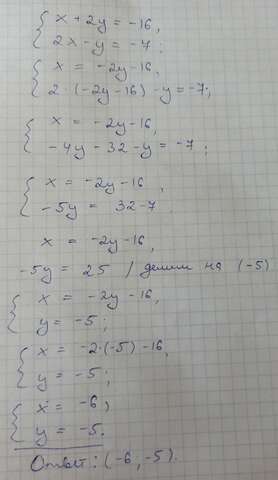 x + 2y = -16,
2x - y = -7;
x = -2y - 16,
2·(-2y-16) - y = -7;
x = -2y - 16,
-4y - 32 - y = -7;
x = -2y - 16,
-5y = 32 - 7
x = -2y - 16,
-5y = 25 / делим на (-5)
x = -2y - 16,
y = -5;
x = -2·(-5) - 16,
y = -5;
x = -6,
y = -5.
Ответ: (-6, -5).